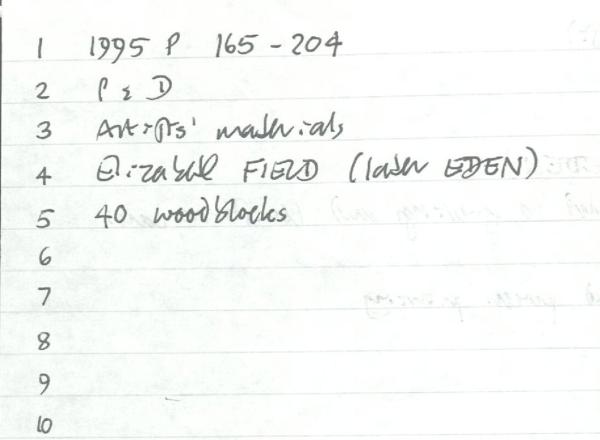 1 1995 P 165 - 204
2 P & D
3 Artists' materials
4 Elizabeth FIELD (later EDEN)
5 40 woodblocks
6
7
8
9
10